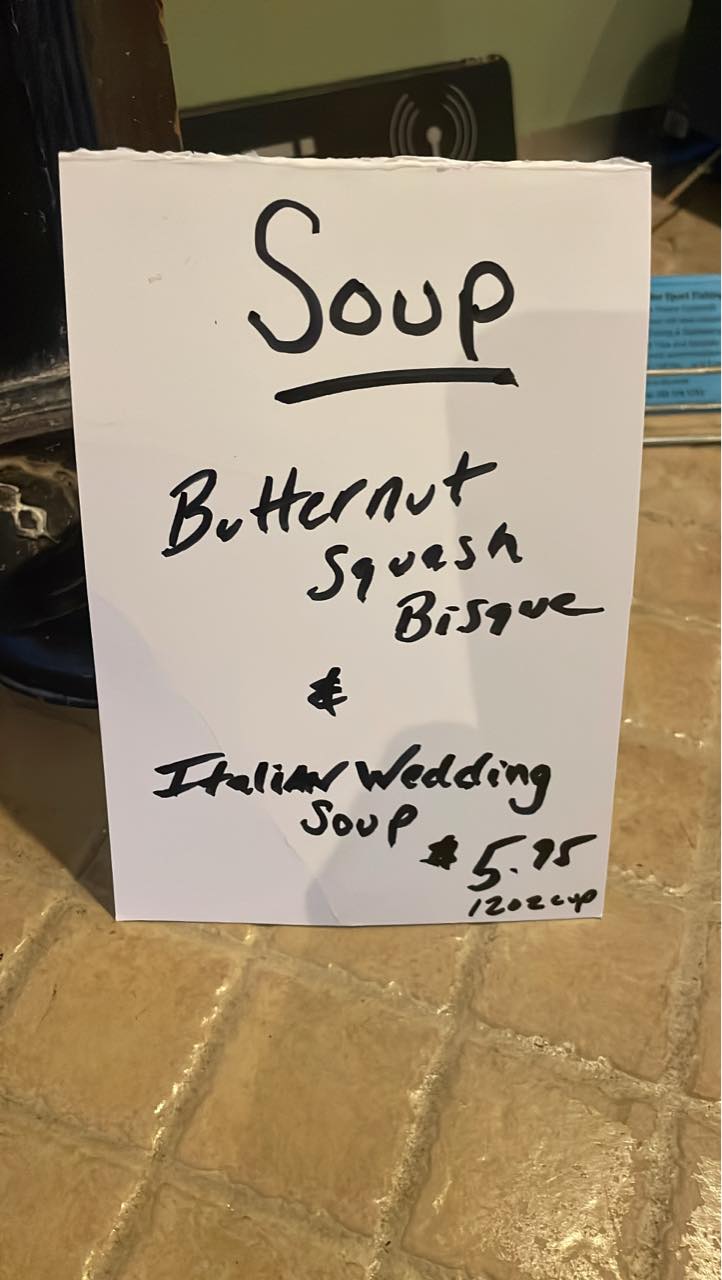 Soup
Butternut
Squash
Bisque
&
Italian Wedding
Soup
$5.95
12oz cup
Sport Fishing